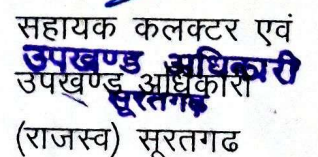 सहायक कलक्टर एवं
उपखण्ड अधिकारी
उपखण्ड अधिकारी
सूरतगढ
(राजस्व) सूरतगढ